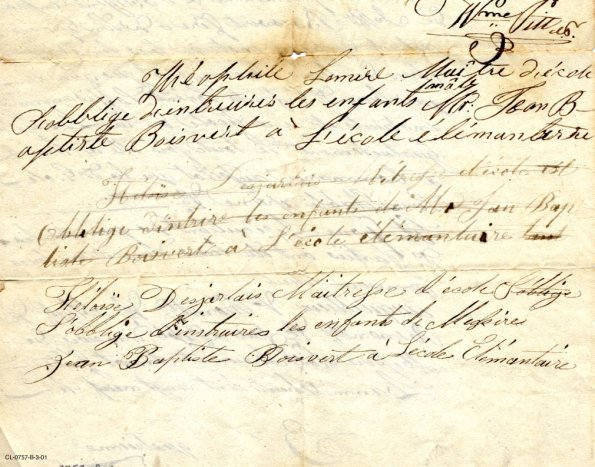 Wme Pitt
Théophile Lemire Maître d'école
S'obblige d'intruires les enfants mâle Mr. Jean B
aptiste Boisvert à L'école elémantere
Heloïse Desjarlais Mètrese d'école est
Obblige d'intrire les enfants de Mr Jan Bap
tiste Boisvert à L'école elémantuire
Héloïse Desjarlais Maitresse d'école Sobblige
S'obblige d'instruires les enfants de Messires
Jean Baptiste Boisvert à L'école Elémantaire
CL-0757-B-3-01